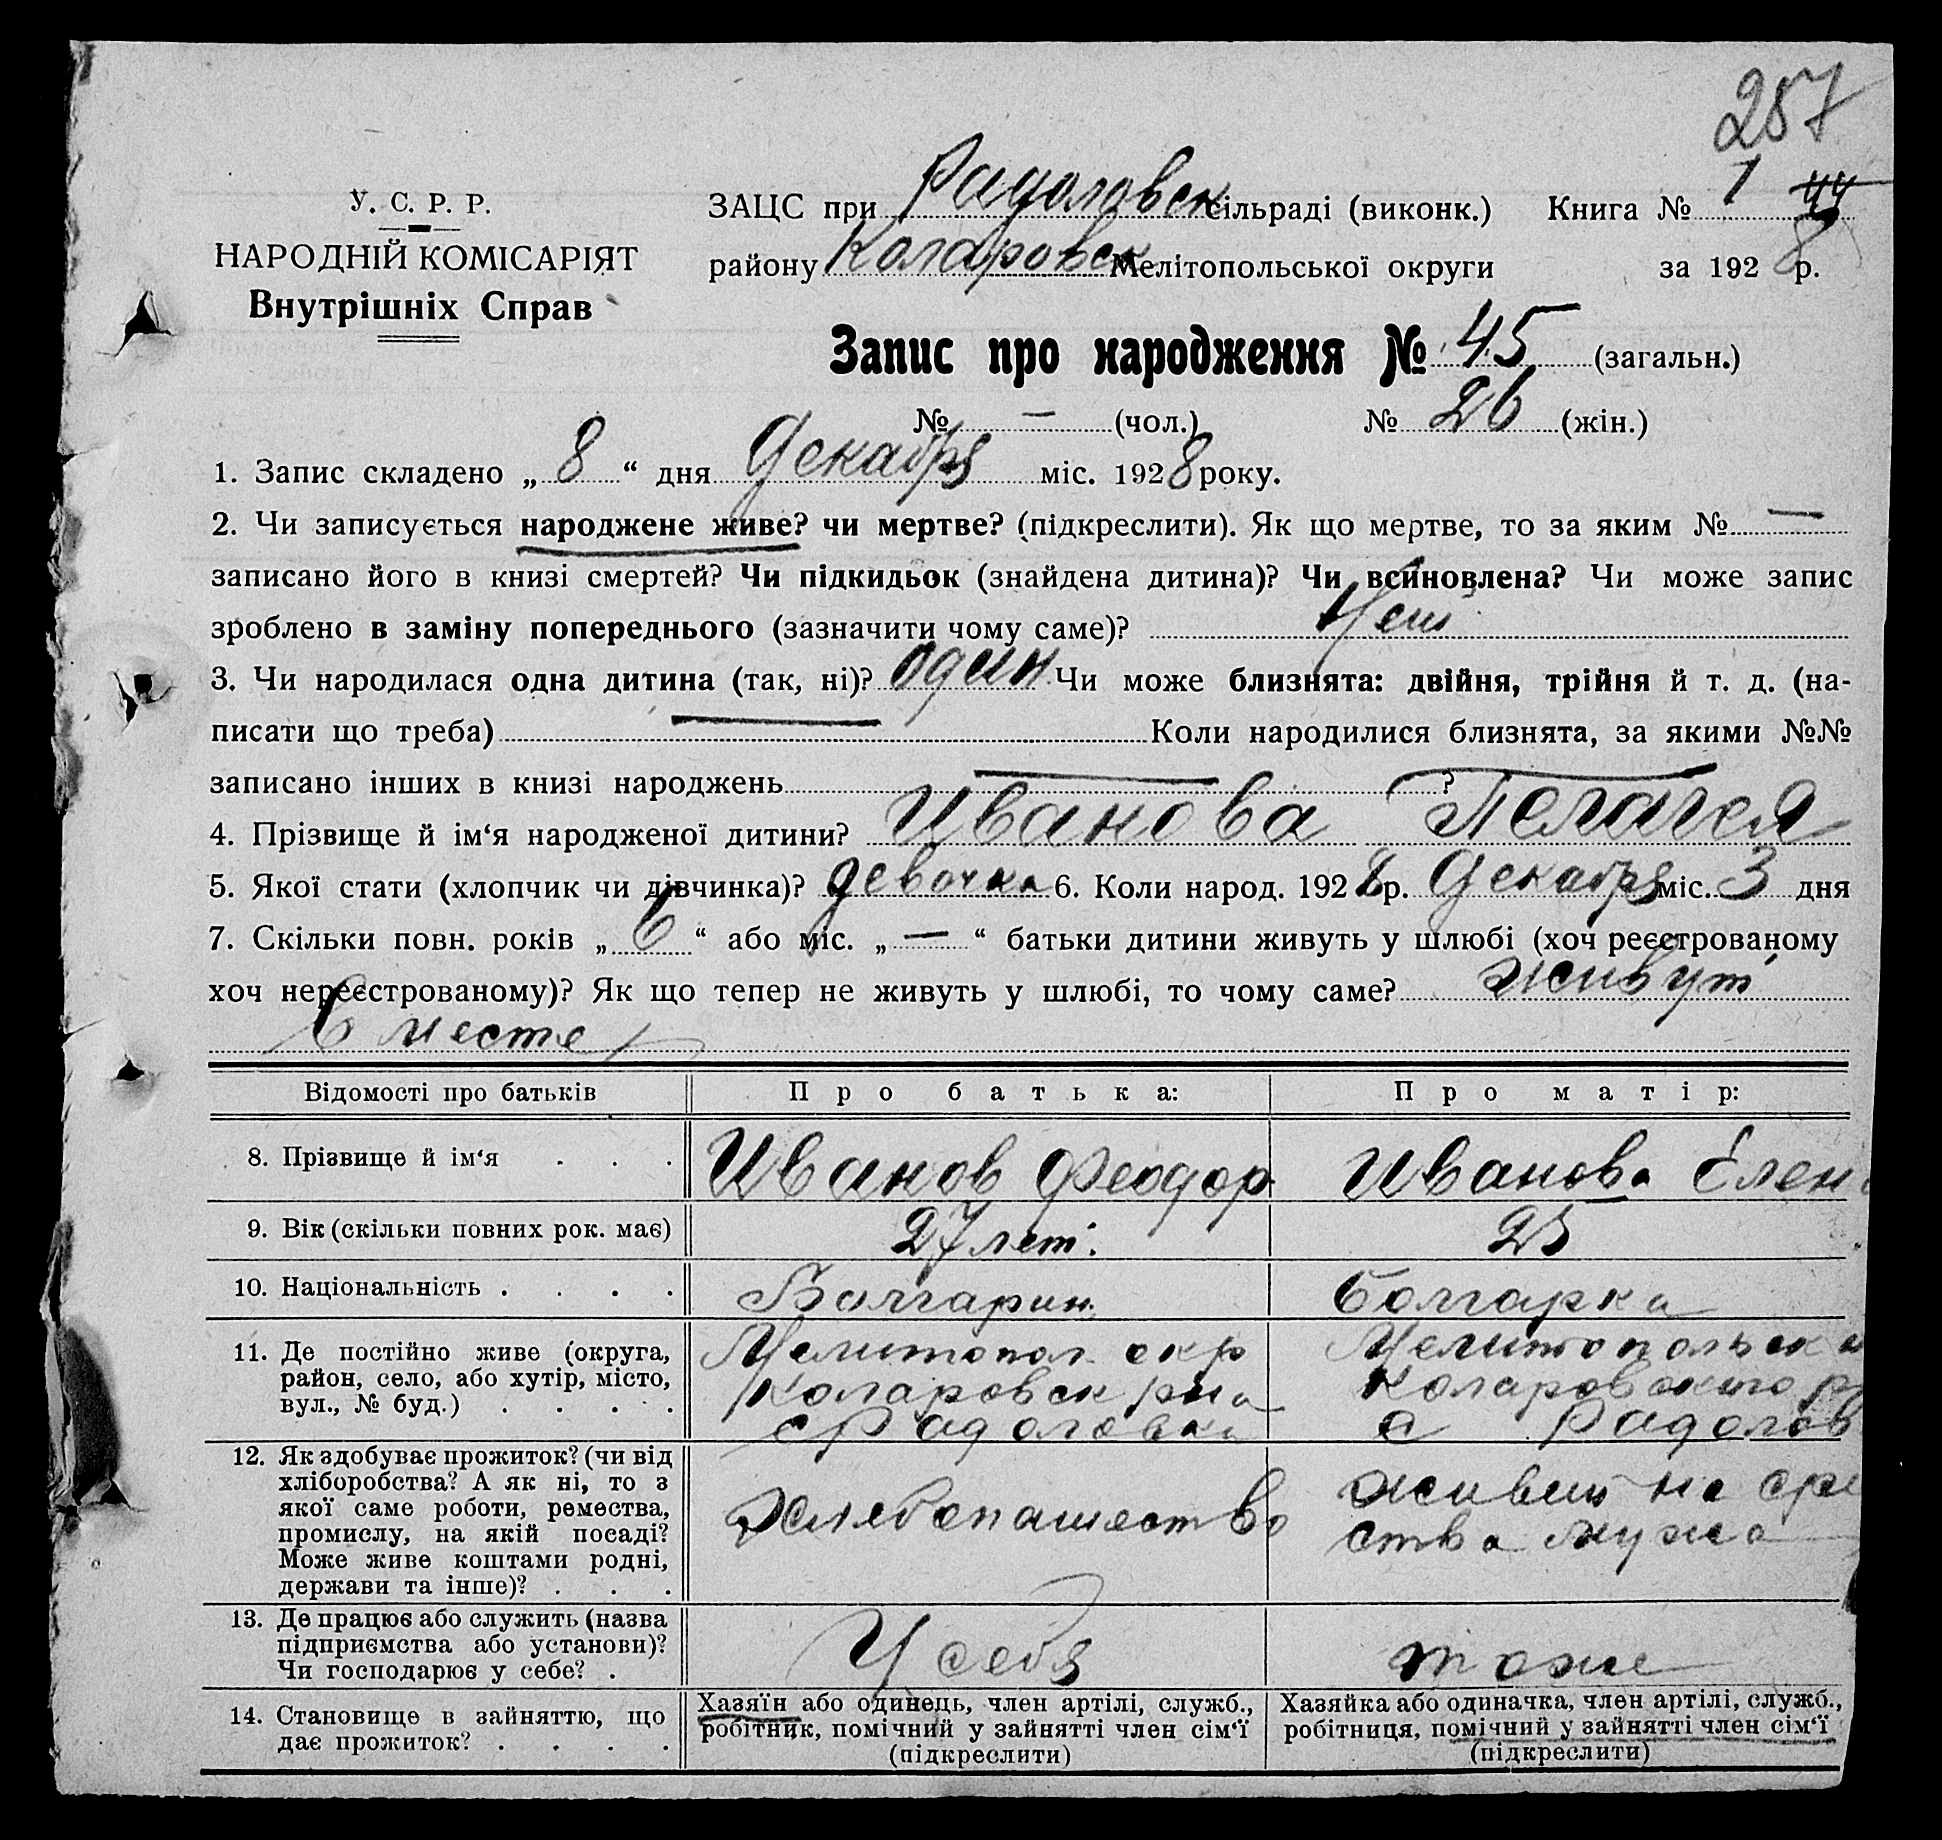 287
У. С. Р. Р.
НАРОДНІЙ КОМІСАРІЯТ
Внутрішніх Справ
ЗАЦС при Радоловск сільраді (виконк.) Книга № 1 44
району Коларовск Мелітопольської округи за 1928 р.
Запис про народження № 45 (загальн.)
№ — (чол.) № 26 (жін.)
1. Запис складено „ 8 “ дня Декабря міс. 1928 року.
2. Чи записується народжене живе? чи мертве? (підкреслити). Як що мертве, то за яким № —
записано його в книзі смертей? Чи підкидьок (знайдена дитина)? Чи всиновлена? Чи може запис
зроблено в заміну попереднього (зазначити чому саме)? Нет
3. Чи народилася одна дитина (так, ні)? один Чи може близнята: двійня, трійня й т. д. (на-
писати що треба) — Коли народилися близнята, за якими №№
записано інших в книзі народжень — ?
4. Прізвище й ім‘я народженої дитини? Иванова Пелагея
5. Якої стати (хлопчик чи дівчинка)? девочка 6. Коли народ. 1928 р. Декабря міс. 3 дня
7. Скільки повн. років „ 6 “ або міс. „ — “ батьки дитини живуть у шлюбі (хоч реєстрованому
хоч нереєстрованому)? Як що тепер не живуть у шлюбі, то чому саме? живут
вместе
Відомості про батьків Про батька: Про матір:
8. Прізвище й ім‘я . . . Иванов Феодор Иванова Елен
9. Вік (скільки повних рок. має) 27 лет. 25
10. Національність . . . . Болгарин Болгарка
11. Де постійно живе (округа,
район, село, або хутір, місто,
вул., № буд.) . . . . .
Мелитопол окр
Коларовск рна
с Радоловка
Мелитопольск
Коларовского р
с Радолов
12. Як здобуває прожиток? (чи від
хліборобства? А як ні, то з
якої саме роботи, ремества,
промислу, на якій посаді?
Може живе коштами родні,
держави та інше)? . . .
Хлебопашество
живет на сред
ства мужа
13. Де працює або служить (назва
підприємства або установи)?
Чи господарює у себе? .
У себя
тоже
14. Становище в зайняттю, що
дає прожиток? . . . .
Хазяїн або одинець, член артілі, служб.,
робітник, помічний у зайнятті член сім‘ї
(підкреслити)
Хазяйка або одиначка, член артілі, служб.,
робітниця, помічний у зайнятті член сім‘ї
(підкреслити)